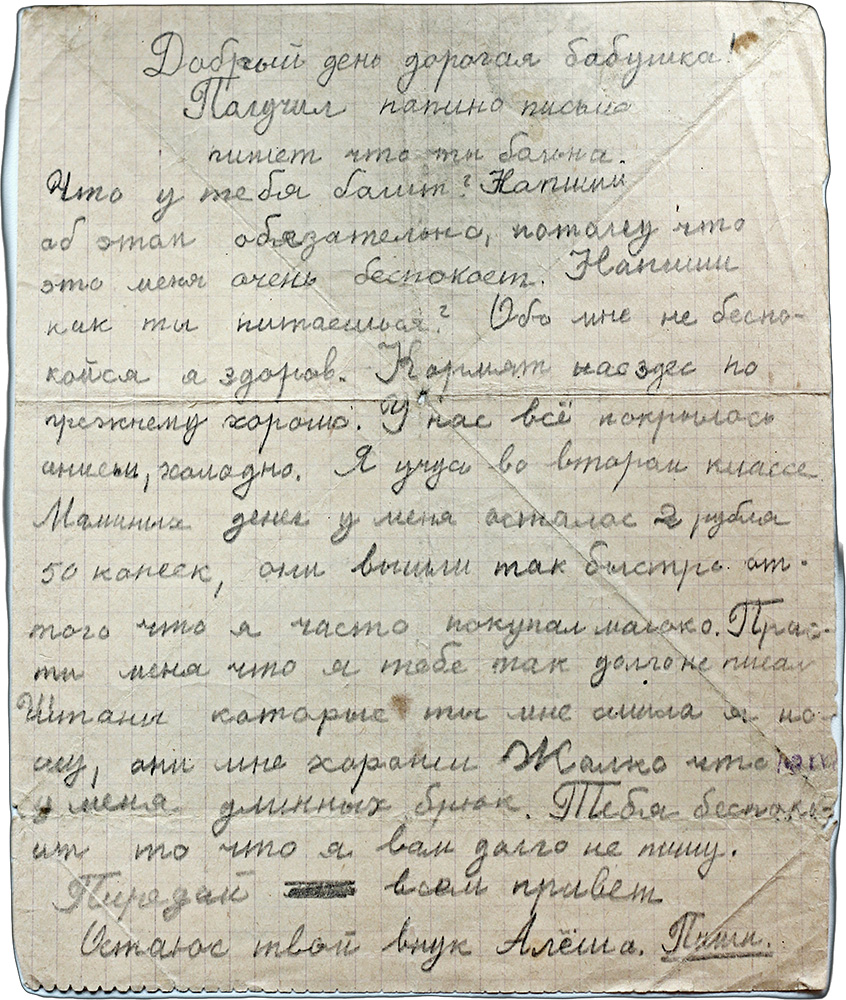 Добрый день дорогая бабушка!
Палучил папино письмо
пишет что ты больна.
Что у тебя балит? Напиши
аб этам обязательно, патаму что
это меня очень беспокоет. Напиши
как ты питаешься? Обо мне не беспо-
койся я здоров. Кормят нас здес по
прежнему харошо. У нас всё покрылось
инием, халадно. Я учусь во втором классе
Маминых денег у меня осталос 2 рубля
50 копеек, они вышли так быстро от-
того что я часто покупал малоко. Прас-
ти меня что я тебе так долго не писал
Штаны которые ты мне сшила я но-
шу, они мне хароши Жалко что
у меня длинных брюк. Тебя беспоко-
ит то что я вам долго не пишу.
Пиредай всем привет
Остаюс твой внук Алёша. Пиши.